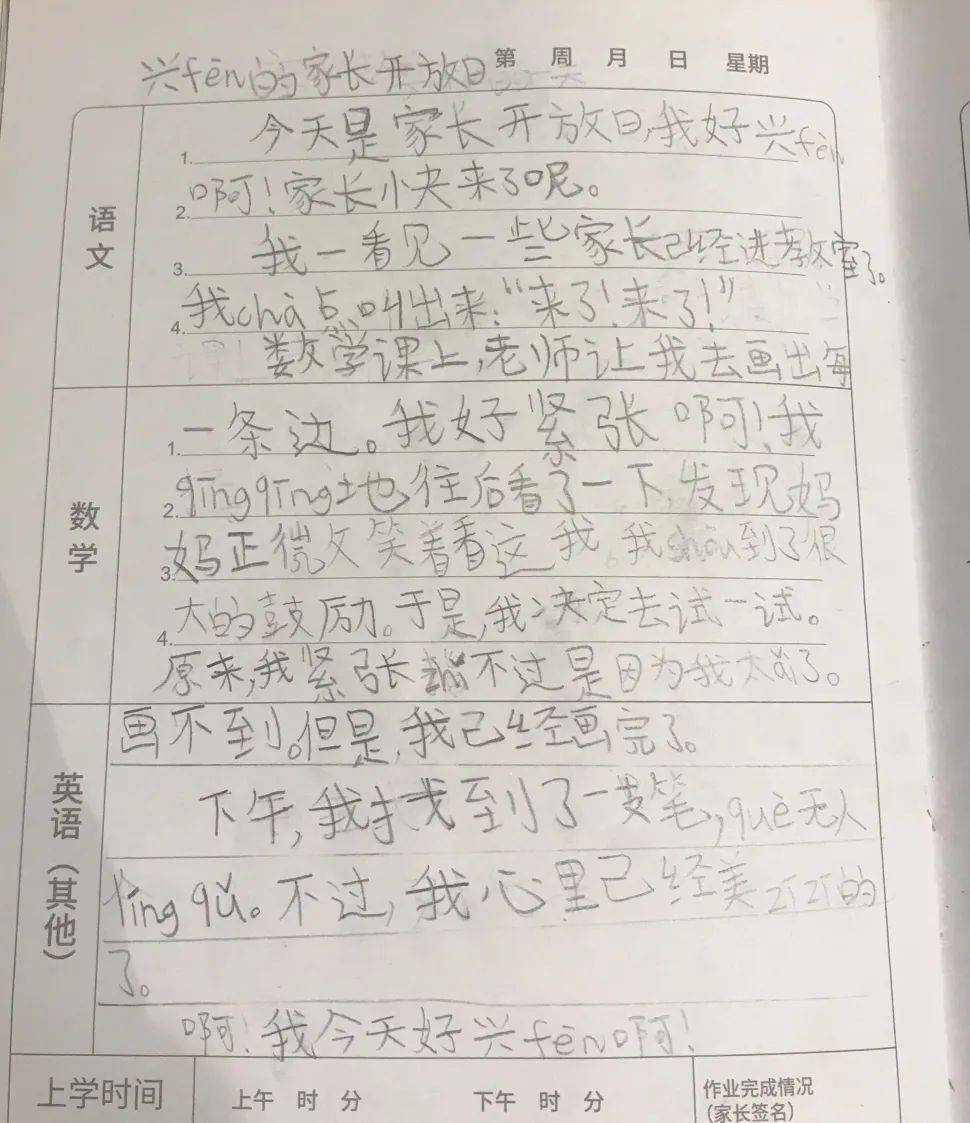 第 周 月 日 星期
兴fèn的家长开放日
语文
今天是家长开放日,我好兴fèn
1.
啊!家长小夫来了呢。
2.
我一看见一些家长已经进教室了。
3.
我chà点叫出来:“来了!来了!”
4.
数学课上,老师让我去画出每
数学
一条边。我好紧张啊!我
1.
qīngqīng地往后看了一下,发现妈
2.
妈正微笑着看这我。我shòu到了很
3.
大的鼓励。于是,我决定去试一试。
4.
原来,我紧张 不过是因为我太ǎi了。
英语(其他)
画不到。但是,我已经画完了。
下午,我找到了一支笔,què无人
lǐng qǔ。不过,我心里已经美zīzī的
了。
啊!我今天好兴fèn啊!
上学时间
上午 时 分
下午 时 分
作业完成情况
(家长签名)